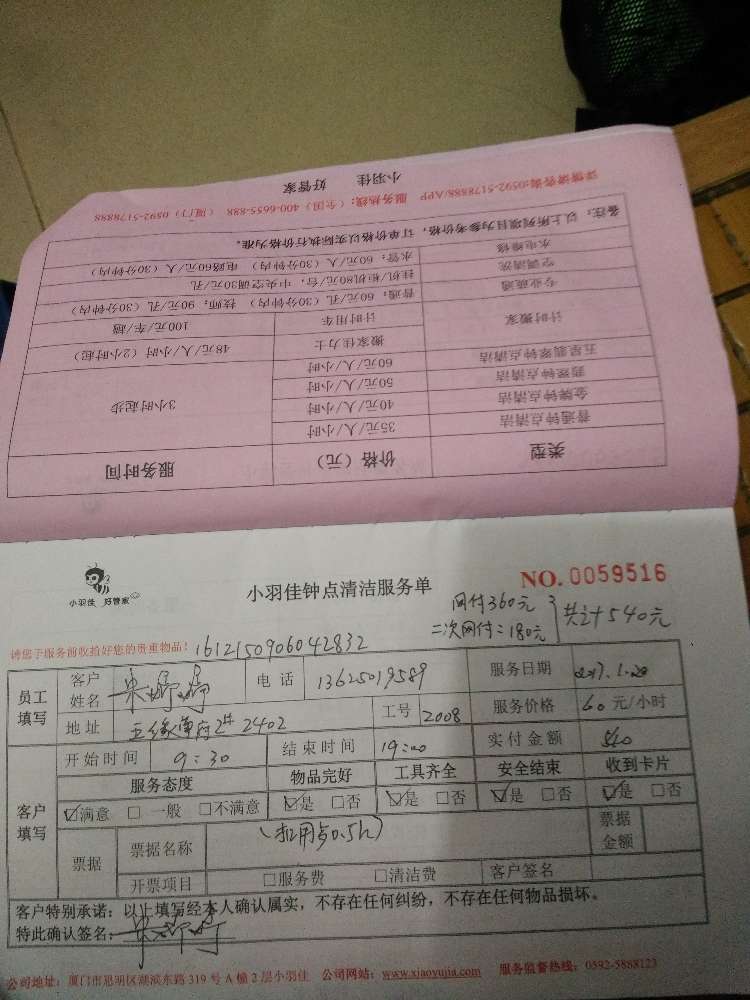 小羽佳 好管家
详情请咨询:0592-5178888/APP 服务热线:(全国)400-6655-888 (厦门)0592-5178888
类型 价格(元) 服务时间
普通钟点清洁 35元/人/小时 3小时起步
金牌钟点清洁 40元/人/小时
翡翠钟点清洁 50元/人/小时
五星翡翠钟点清洁 60元/人/小时
计时搬家 搬家佳力士 48元/人/小时(2小时起)
计时用车 100元/车/趟
专业疏通 普通:60元/孔(30分钟内) 技师:90元/孔(30分钟内)
空调清洗 挂机/柜机80元/台,中央空调30元/孔
水电维修 水管:60元/人(30分钟内) 电路60元/人(30分钟内)
备注:以上所列项目为参考价格,订单价格以实际执行价格为准。
小羽佳 好管家
小羽佳钟点清洁服务单
NO. 0059516
网付360元
二次网付:180元
共计540元
请您于服务前收拾好您的贵重物品!
1612150906042832
员工填写
客户姓名
电话 13625019589
服务日期
地址 2402
工号 2008
服务价格 60 元/小时
开始时间 9:30
结束时间 19:00
实付金额 540
客户填写
服务态度 物品完好 工具齐全 安全结束 收到卡片
☑满意 □一般 □不满意 ☑是 □否 ☑是 □否 ☑是 □否 ☑是 □否
票据 票据名称 票据金额
(扣用点0.5h)
开票项目 □服务费 □清洁费 客户签名
客户特别承诺:以上填写经本人确认属实,不存在任何纠纷,不存在任何物品损坏。
特此确认签名:
公司地址:厦门市思明区湖滨东路 319 号 A 幢 2 层小羽佳 公司网站:www.xiaoyujia.com 服务监督热线:0592-5888123